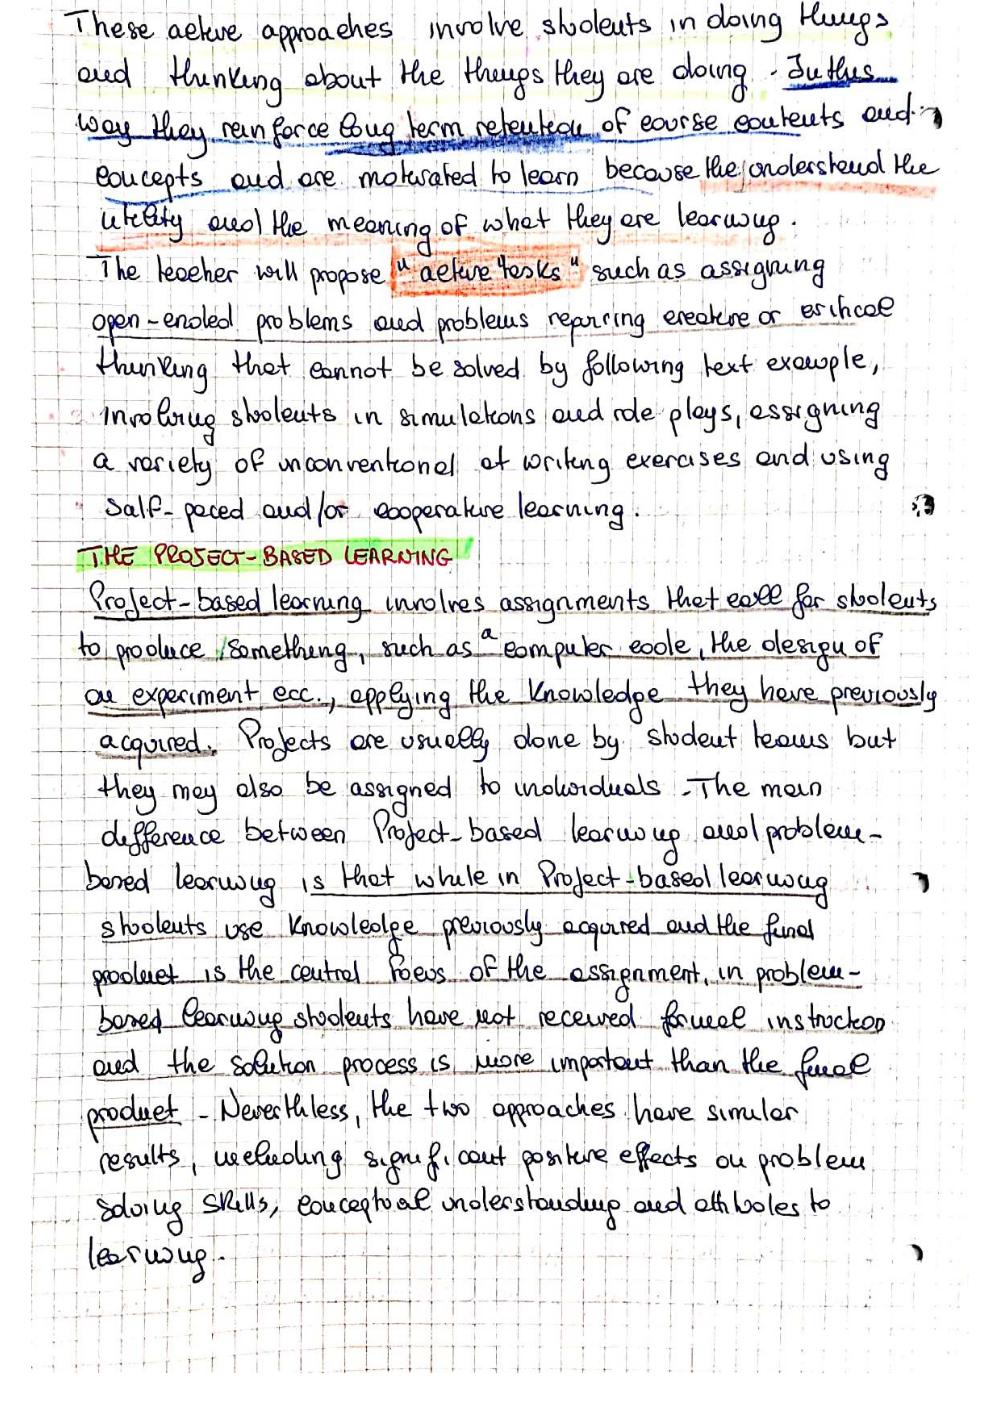 These active approaches involve students in doing things
and thinking about the things they are doing. In this
way they reinforce long term retention of course contents and
concepts and are motivated to learn because the understand the
utility and the meaning of what they are learning.
The teacher will propose "active tasks" such as assigning
open-ended problems and problems requiring creative or critical
thinking that cannot be solved by following text example,
involving students in simulations and role plays, assigning
a variety of unconventional of writing exercises and using
salf-paced and/or cooperative learning.
THE PROJECT-BASED LEARNING
Project-based learning involves assignments that call for students
to produce something, such as a computer code, the design of
an experiment ecc., applying the knowledge they have previously
acquired. Projects are usually done by student teams but
they may also be assigned to individuals. The main
difference between Project-based learning and problem-
based learning is that while in Project-based learning
students use knowledge previously acquired and the final
product is the central focus of the assignment, in problem-
based learning students have not received formal instruction
and the solution process is more important than the final
product. Neverthless, the two approaches have similar
results, including significant positive effects on problem
solving skills, conceptual understanding and attitudes to
learning.